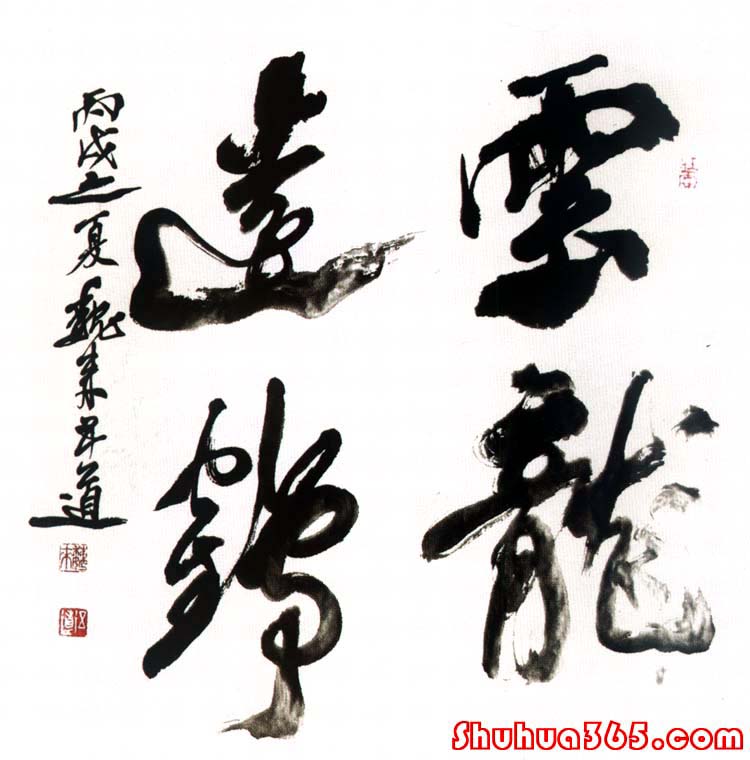 雲龍
遠鶴
丙戌之夏魏来道
Shuhua365.com